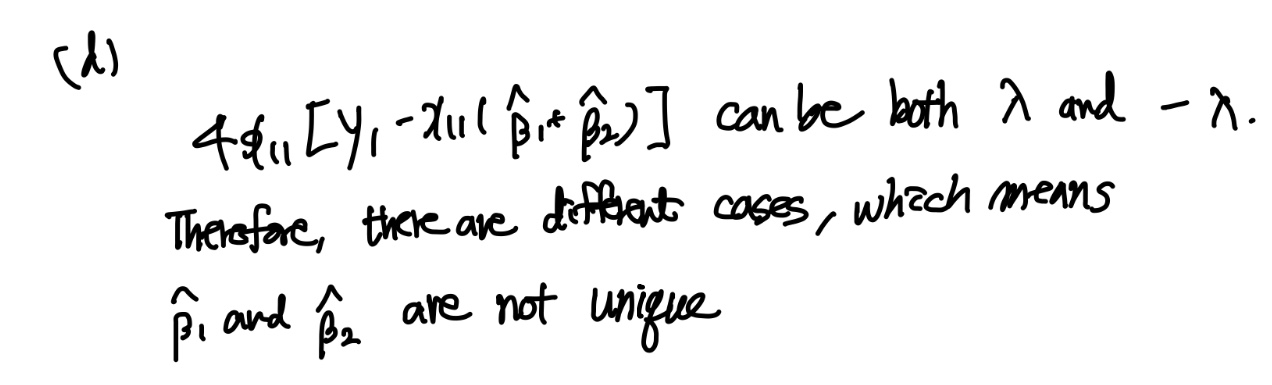 (d)
4x₁₁[y₁-x₁₁(β̂₁+β̂₂)] can be both λ and -λ.
Therefore, there are different cases, which means
β̂₁ and β̂₂ are not unique